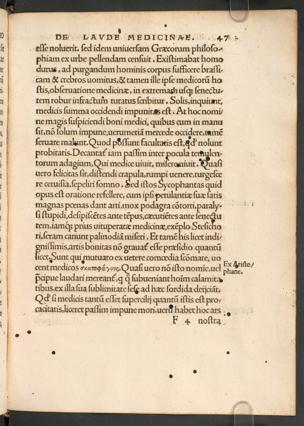 DE LAVDE MEDICINAE. 47
esse noluerit. sed idem uniuersam Græcorum philoso-
phiam ex urbe pellendam censuit. Existimabat homo
durus, ad purgandum hominis corpus sufficere brassi-
cam & crebros uomitus, & tamen ille ipse medicorū ho
stis, obseruatione medicinæ, in extremam usq; senectu-
tem robur infractum tutatus scribitur. Solis, inquiunt,
medicis summa occidendi impunitas est. At hoc nomi
ne magis suspiciendi boni medici, quibus cum in manu
sit, nō solum impune, uerumetiā mercede occidere, tamē
seruare malunt. Quod possunt facultatis est, qd' nolunt
probitatis. Decantat' iam passim inter pocula temulen-
torum adagium, Qui medice uiuit, misere uiuit. Quasi
uero felicitas sit, distendi crapula, rumpi uenere, turgesce
re ceruisia, sepeliri somno. Sed istos Sycophantas quid
opus est oratione refellere, cum ipsi petulantiæ suæ satis
magnas pœnas dant arti, mox podagra cōtorti, paraly-
si stupidi, desipiscētes ante tēpus, cæcutiētes ante senectu
tem, iamq; prius uituperatæ medicinæ, exēplo Stesicho
ri, seram canunt palinodiā miseri. Et tamē his licet indi-
gnissimis, artis bonitas nō grauat' esse præsidio quantū
licet. Sunt qui mutuato ex uetere comœdia scōmate, uo
cent medicos Quasi uero nō isto nomine, uel
præcipue laudari mereant', q, q̃ subueniant hoīm calamita
tibus, ex illa sua sublimitate sese ad hæc sordida deijciāt.
Qd' si medicis tantū esset supercilij quantū istis est pro-
cacitatis, liceret passim impune mori, uerū habet hoc ars
F 4 nostra
Ex Aristo/
phane.